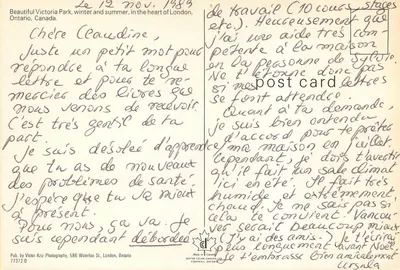 Beautiful Victoria Park, winter and summer, in the heart of London,
Ontario, Canada
Le 12 nov. 1989
Chère Claudine,
Juste un petit mot pour
répondre à ta longue
lettre et pour te re-
mercier des livres que
nous venons de recevoir.
C'est très gentil de ta
part.
Je suis désolée d'apprendre
que tu as de nouveau
des problèmes de santé.
J'espère que tu vas mieux
à présent.
Pour nous, ça va. Je
suis cependant débordée
Pub. by Victor Aziz Photography, London, Ontario
de travail (10 cours, stages
etc.). Heureusement que
j'ai une aide très com-
pétente à la maison
en la personne de Sylvie.
Ne t'étonne donc pas
si mes lettres
se font attendre.
post card
Quant à ta demande,
je suis bien entendu
d'accord pour te prêter
ma maison en juillet.
Cependant, je dois t'avertir
qu'il fait un sale climat
ici en été. Il fait très
humide et extrêmement
chaud. Je ne sais pas si
cela te convient. Vancou-
ver serait beaucoup mieux
J'y ai des amis. Je t'écrirai
plus longuement avant Noël.
Je t'embrasse bien amicalement
Ursula